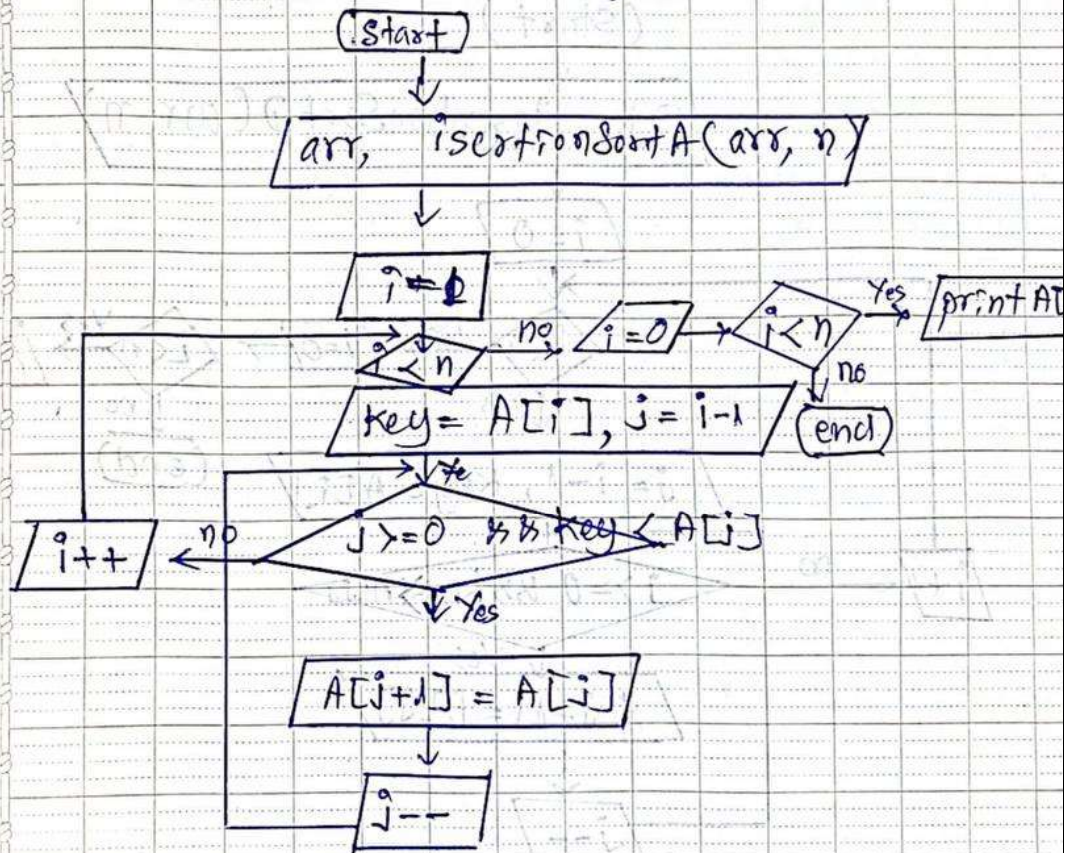 Start
arr, isertionSortA(arr, n)
i = 1
i < n
no
i = 0
i < n
Yes
print A[
no
end
key = A[i], j = i-1
Ye
j >= 0 && key < A[j]
no
i++
Yes
A[j+1] = A[j]
j--